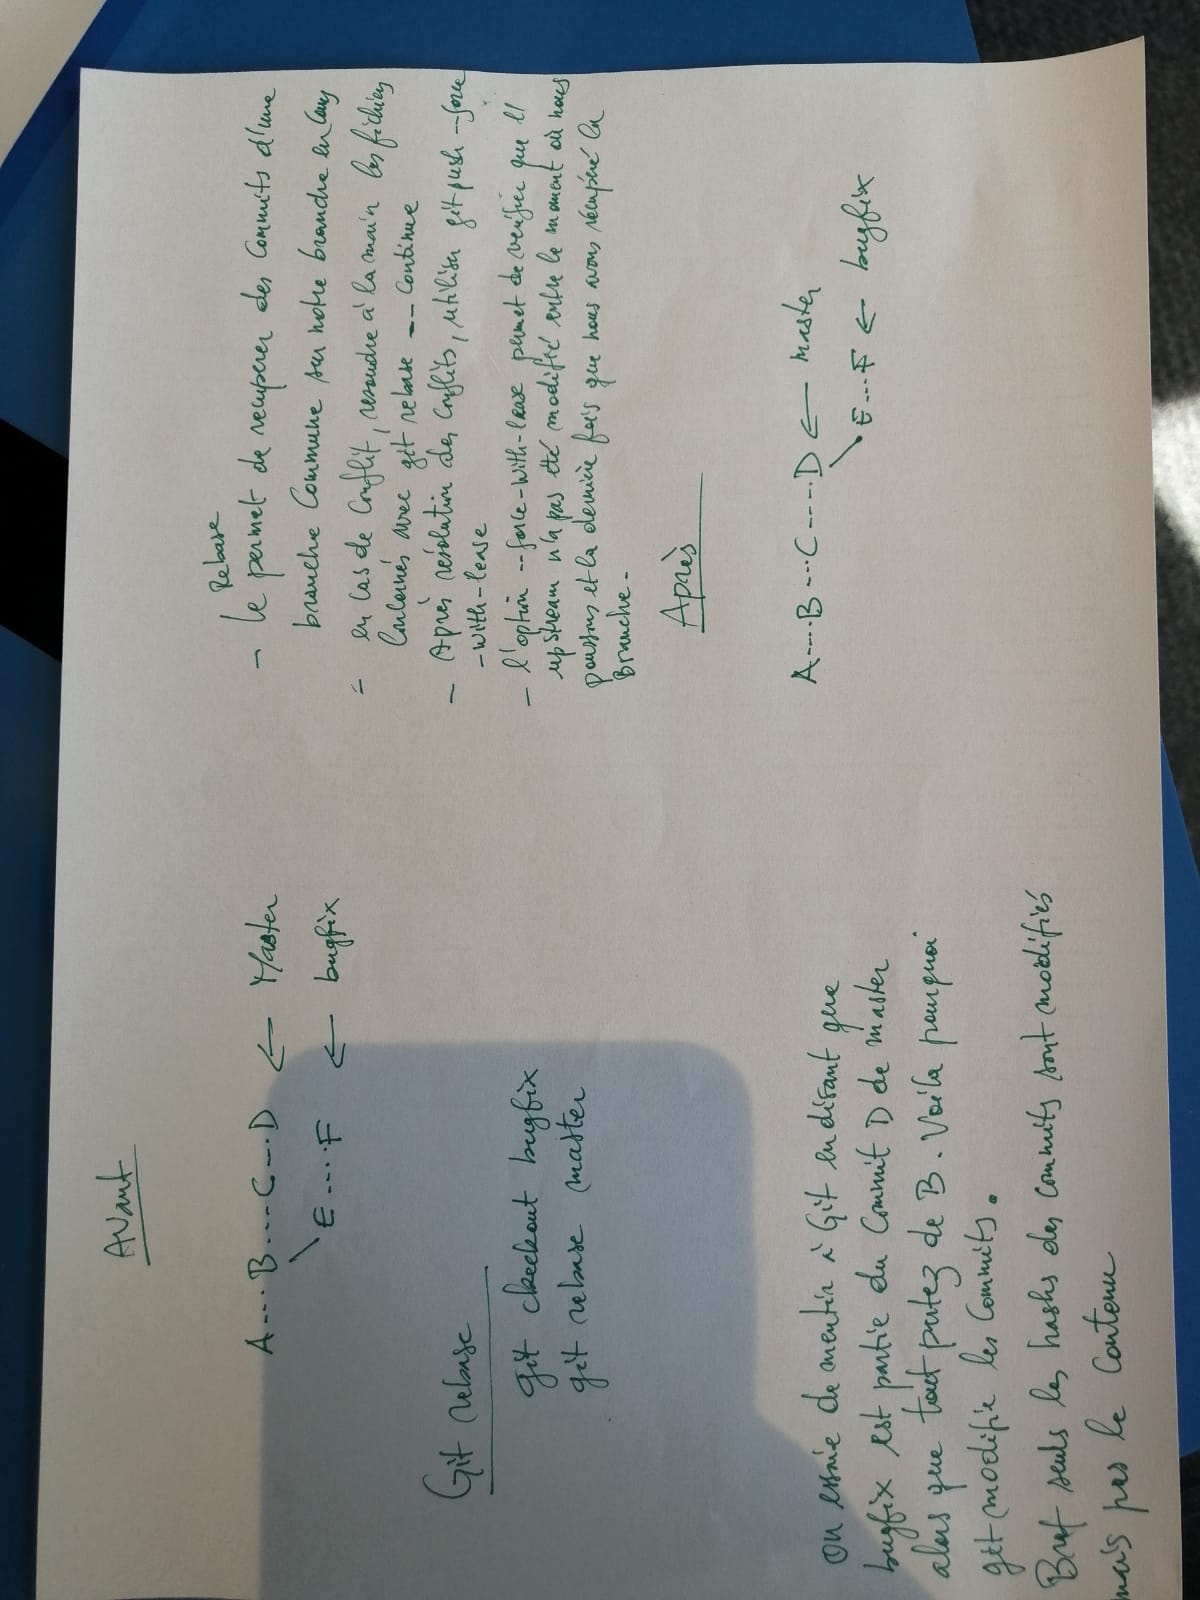 Avant
A....B....C...D ← Master
\ E....F ← bugfix
Git rebase
git checkout bugfix
git rebase master
On essaie de mentir à Git en disant que
bugfix est partie du Commit D de master
alors que tout partez de B. Voila pourquoi
git modifie les Commits.
Bref seuls les hashs des commits sont modifiés
mais pas le Contenu
Rebase
- le permet de recuperer des Commits d'une
branche Commune sur notre branche en Cours
- en Cas de Conflit, resoudre à la main les fichiers
Concernés avec git rebase -- Continue
- Après résolution des Conflits, utiliser git push --force
-with-lease
- l'option --force-with-lease permet de vérifier que l'
upstream n'a pas été modifié entre le moment où nous
poussons et la dernière fois que nous avons récupéré la
Branche.
Après
A....B...C....D ← master
\ E...F ← bugfix